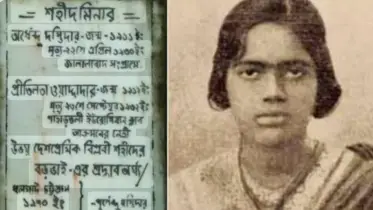 শহীদ মিনার
অর্ধেন্দু দস্তিদার-জন্ম ১৯১১ ইং
মৃত্যু ২২শে এপ্রিল ১৯৩০ ইং
জালালাবাদ সংগ্রামে
প্রীতিলতা ওয়াদ্দাদার-জন্ম ১৯১১ ইং
মৃত্যু ২৩শে সেপ্টেম্বর ১৯৩২ ইং
পাহাড়তলী ইউরোপিয়ান ক্লাব
আক্রমনের নেত্রী
উভয় দেশপ্রেমিক বিপ্লবী শহীদের
বড়ভাই-এর শ্রদ্ধার্ঘ্য
ধলঘাট চট্টগ্রাম
১৯৭০ ইং
-পূর্ণেন্দু দস্তিদার